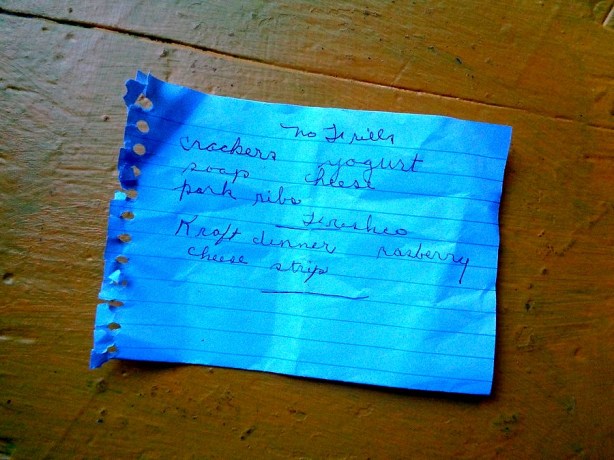 no Frills
crackers yogurt
soap cheese
pork ribs
Freshco
Kraft dinner rasberry
cheese strip